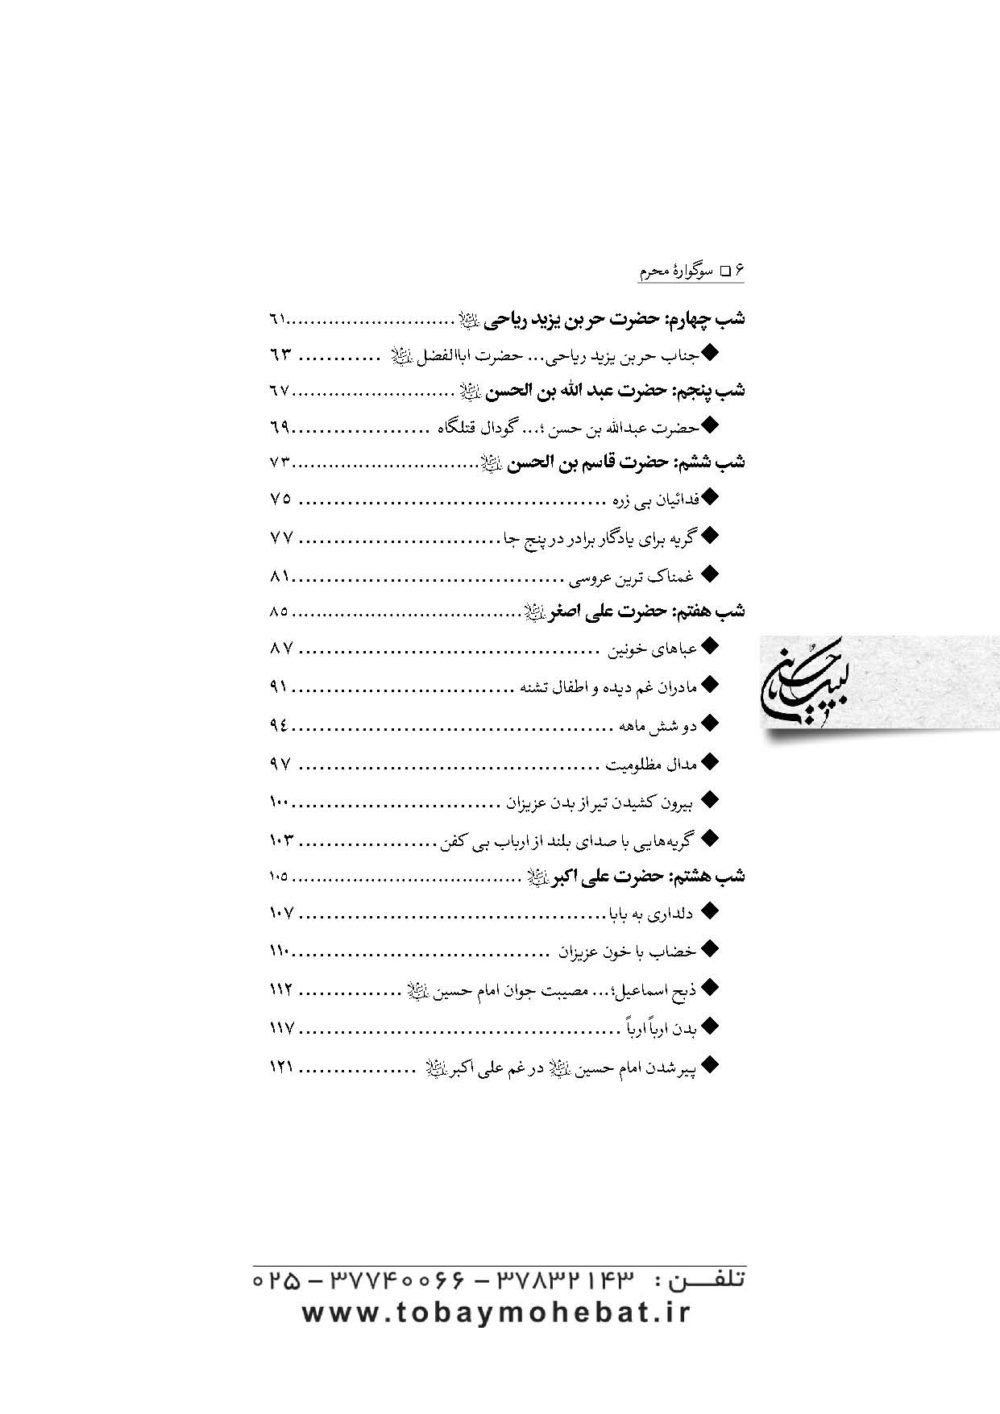 ۶ ❑ سوگوارهٔ محرم
شب چهارم: حضرت حر بن یزید ریاحی علیه‌السلام............................۶۱
◆جناب حر بن یزید ریاحی... حضرت اباالفضل علیه‌السلام ............ ۶۳
شب پنجم: حضرت عبد الله بن الحسن علیه‌السلام...........................۶۷
◆حضرت عبدالله بن حسن ؛... گودال قتلگاه ....................۶۹
شب ششم: حضرت قاسم بن الحسن علیه‌السلام...............................۷۳
◆فدائیان بی زره ............................................ ۷۵
◆گریه برای یادگار برادر در پنج جا............................. ۷۷
◆ غمناک ترین عروسی .......................................۸۱
شب هفتم: حضرت علی اصغر علیه‌السلام...................................... ۸۵
◆عباهای خونین ........................................... ۸۷
◆مادران غم دیده و اطفال تشنه ................................۹۱
◆دو شش ماهه ..............................................۹٤
◆مدال مظلومیت ........................................... ۹۷
◆ بیرون کشیدن تیر از بدن عزیزان ..............................۱۰۰
◆ گریه‌هایی با صدای بلند از ارباب بی کفن.................... ۱۰۳
شب هشتم: حضرت علی اکبر علیه‌السلام ...................................... ۱۰۵
◆ دلداری به بابا............................................ ۱۰۷
◆خضاب با خون عزیزان .....................................۱۱۰
◆ذبح اسماعیل؛... مصیبت جوان امام حسین علیه‌السلام ............... ۱۱۲
◆بدن ارباً ارباً .............................................. ۱۱۷
◆پیر شدن امام حسین علیه‌السلام در غم علی اکبر علیه‌السلام ................. ۱۲۱
لبیک یا حسین
تلفـــن : ۳۷۸۳۲۱۴۳ – ۳۷۷۴۰۰۶۶ – ۰۲۵
www.tobaymohebat.ir